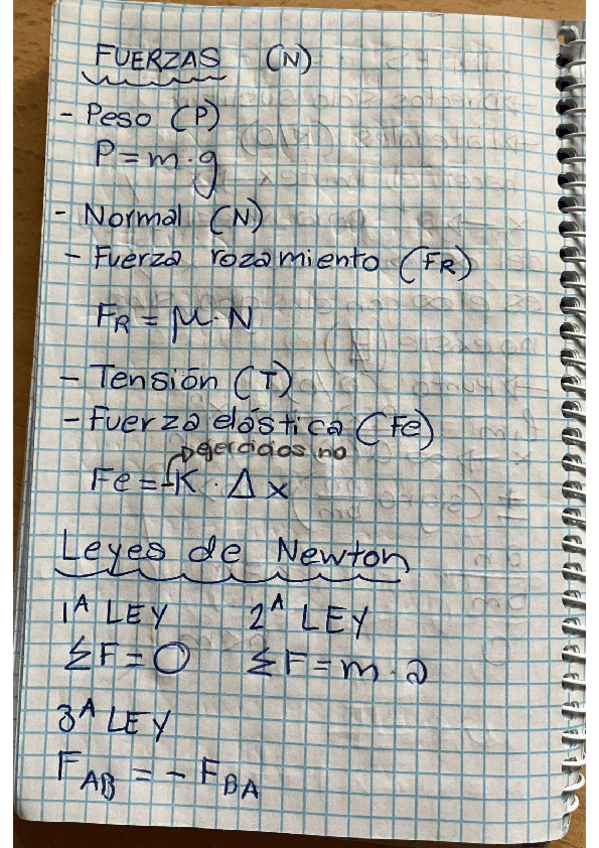 FUERZAS (N)
- Peso (P)
P = m · g
- Normal (N)
- Fuerza rozamiento (FR)
FR = μ · N
- Tensión (T)
- Fuerza elástica (Fe)
ejercicios no
Fe = -K · Δx
Leyes de Newton
1ᴬ LEY 2ᴬ LEY
ΣF = 0 ΣF = m · a
3ᴬ LEY
FAB = - FBA